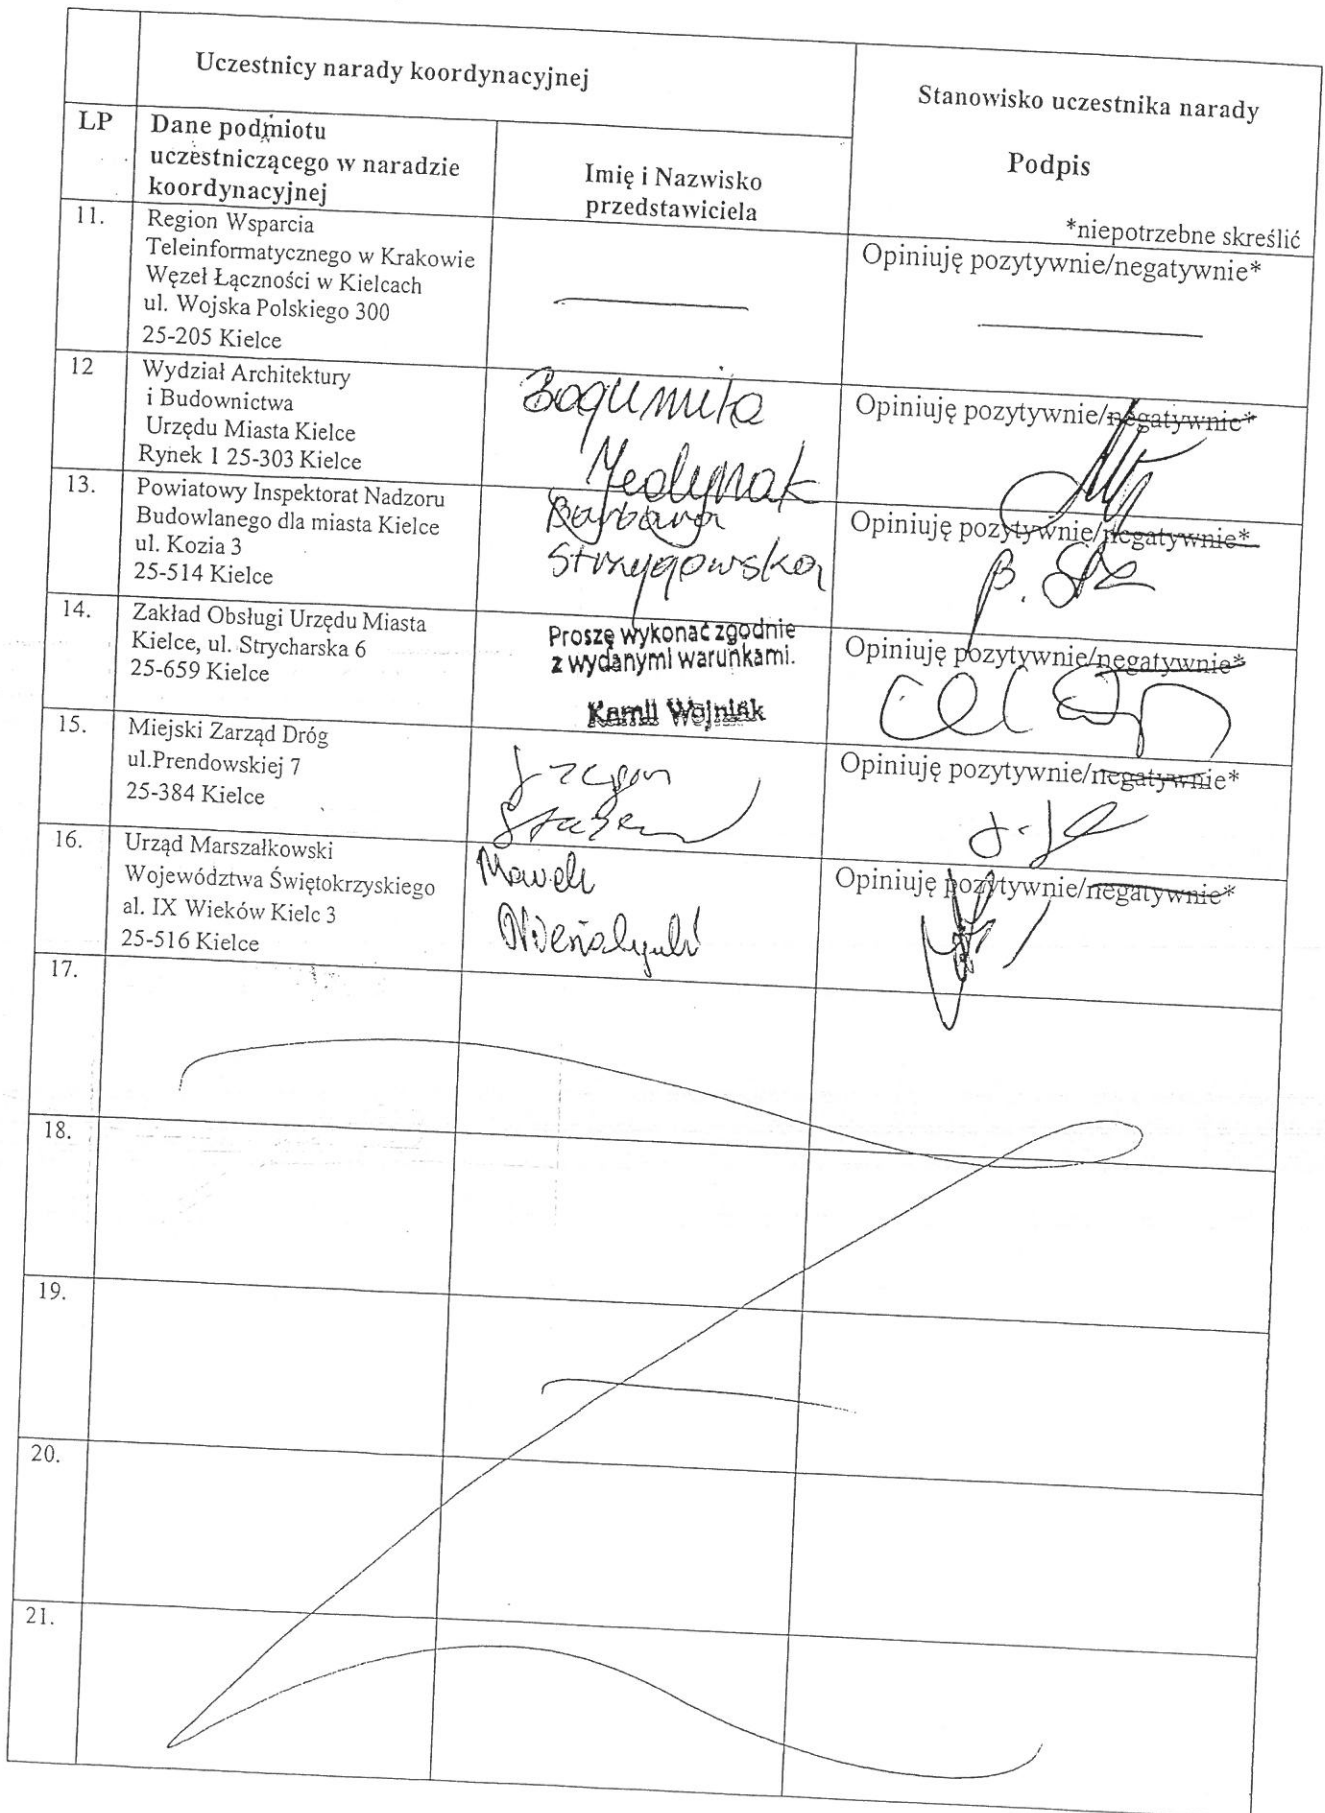 Uczestnicy narady koordynacyjnej
Stanowisko uczestnika narady
Podpis
*niepotrzebne skreślić
LP
Dane podmiotu
uczestniczącego w naradzie
koordynacyjnej
Imię i Nazwisko
przedstawiciela
11.
Region Wsparcia
Teleinformatycznego w Krakowie
Węzeł Łączności w Kielcach
ul. Wojska Polskiego 300
25-205 Kielce
Opiniuję pozytywnie/negatywnie*
12
Wydział Architektury
i Budownictwa
Urzędu Miasta Kielce
Rynek 1 25-303 Kielce
Bogumiła
Medynak
Opiniuję pozytywnie/negatywnie*
13.
Powiatowy Inspektorat Nadzoru
Budowlanego dla miasta Kielce
ul. Kozia 3
25-514 Kielce
Barbara
Strzygowska
Opiniuję pozytywnie/negatywnie*
14.
Zakład Obsługi Urzędu Miasta
Kielce, ul. Strycharska 6
25-659 Kielce
Proszę wykonać zgodnie
z wydanymi warunkami.
Kamil Wojniak
Opiniuję pozytywnie/negatywnie*
15.
Miejski Zarząd Dróg
ul.Prendowskiej 7
25-384 Kielce
Opiniuję pozytywnie/negatywnie*
16.
Urząd Marszałkowski
Województwa Świętokrzyskiego
al. IX Wieków Kielc 3
25-516 Kielce
Opiniuję pozytywnie/negatywnie*
17.
18.
19.
20.
21.